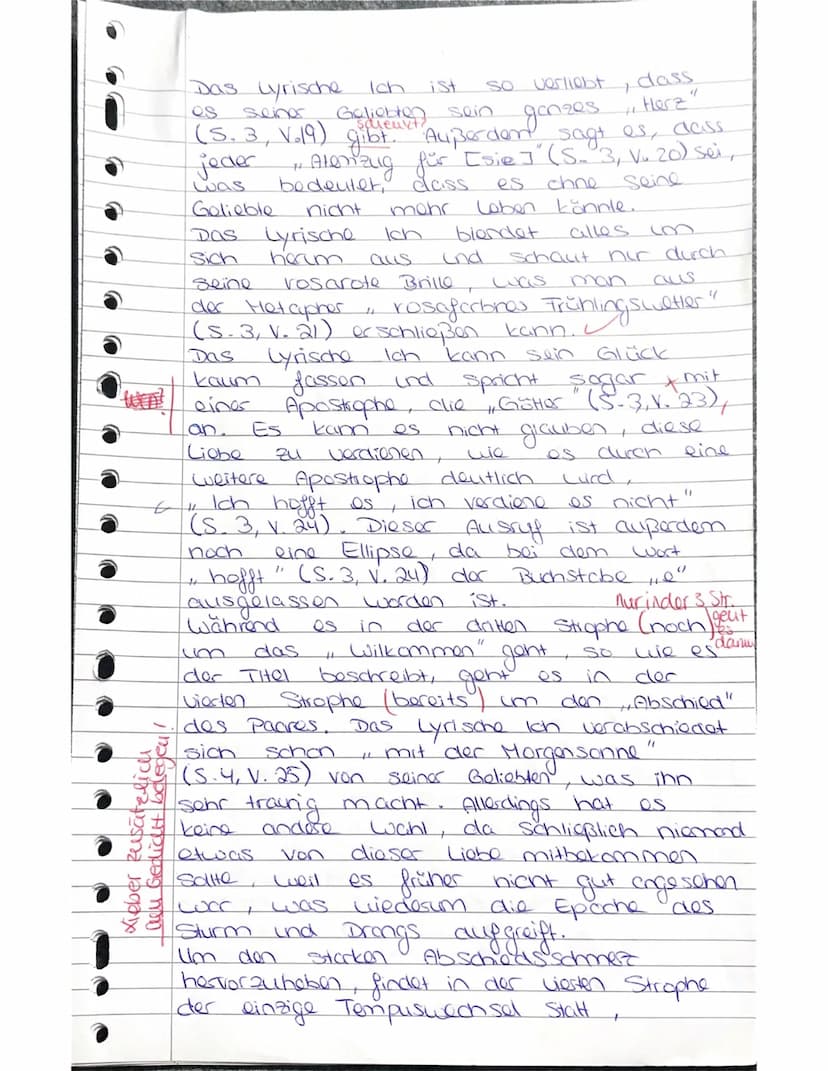 Das Lyrische Ich ist so verliebt, dass
es seiner Geliebten sein ganzes „Herz"
schenkt?
(S. 3, V. 19) gibt. Außerdem sagt es, dass
jeder „Atemzug für [sie]" (S. 3, V. 20) sei,
was bedeutet, dass es ohne seine
Geliebte nicht mehr leben könnte.
Das Lyrische Ich blendet alles um
sich herum aus und schaut nur durch
seine rosarote Brille, was man aus
der Metapher „rosafarbnes Frühlingswetter"
(S. 3, V. 21) erschließen kann.
Das Lyrische Ich kann sein Glück
kaum fassen und spricht sogar, mit
einer Apostrophe, die „Götter" (S. 3, V. 23),
an. Es kann es nicht glauben, diese
Liebe zu verdienen, wie es durch eine
weitere Apostrophe deutlich wird,
„Ich hofft es, ich verdiene es nicht"
(S. 3, V. 24). Dieser Ausruf ist außerdem
noch eine Ellipse, da bei dem Wort
„hofft" (S. 3, V. 24) der Buchstabe „e"
ausgelassen worden ist.
Nur in der 3. Str.
geht
es
darum
Während es in der dritten Strophe (noch)
um das „Wilkommen" geht, so wie es
der Titel beschreibt, geht es in der
vierten Strophe (bereits) um den „Abschied"
des Paares. Das Lyrische Ich verabschiedet
sich schon „mit der Morgensonne"
(S. 4, V. 25) von seiner Geliebten, was ihn
sehr traurig macht. Allerdings hat es
keine andere Wahl, da schließlich niemand
etwas von dieser Liebe mitbekommen
sollte, weil es früher nicht gut angesehen
war, was wiederum die Epoche des
Sturm und Drangs aufgreift.
Um den starken Abschiedsschmerz
hervorzuheben, findet in der vierten Strophe
der einzige Tempuswechsel statt,
Lieber zusätzlich
am Gedicht belegen!